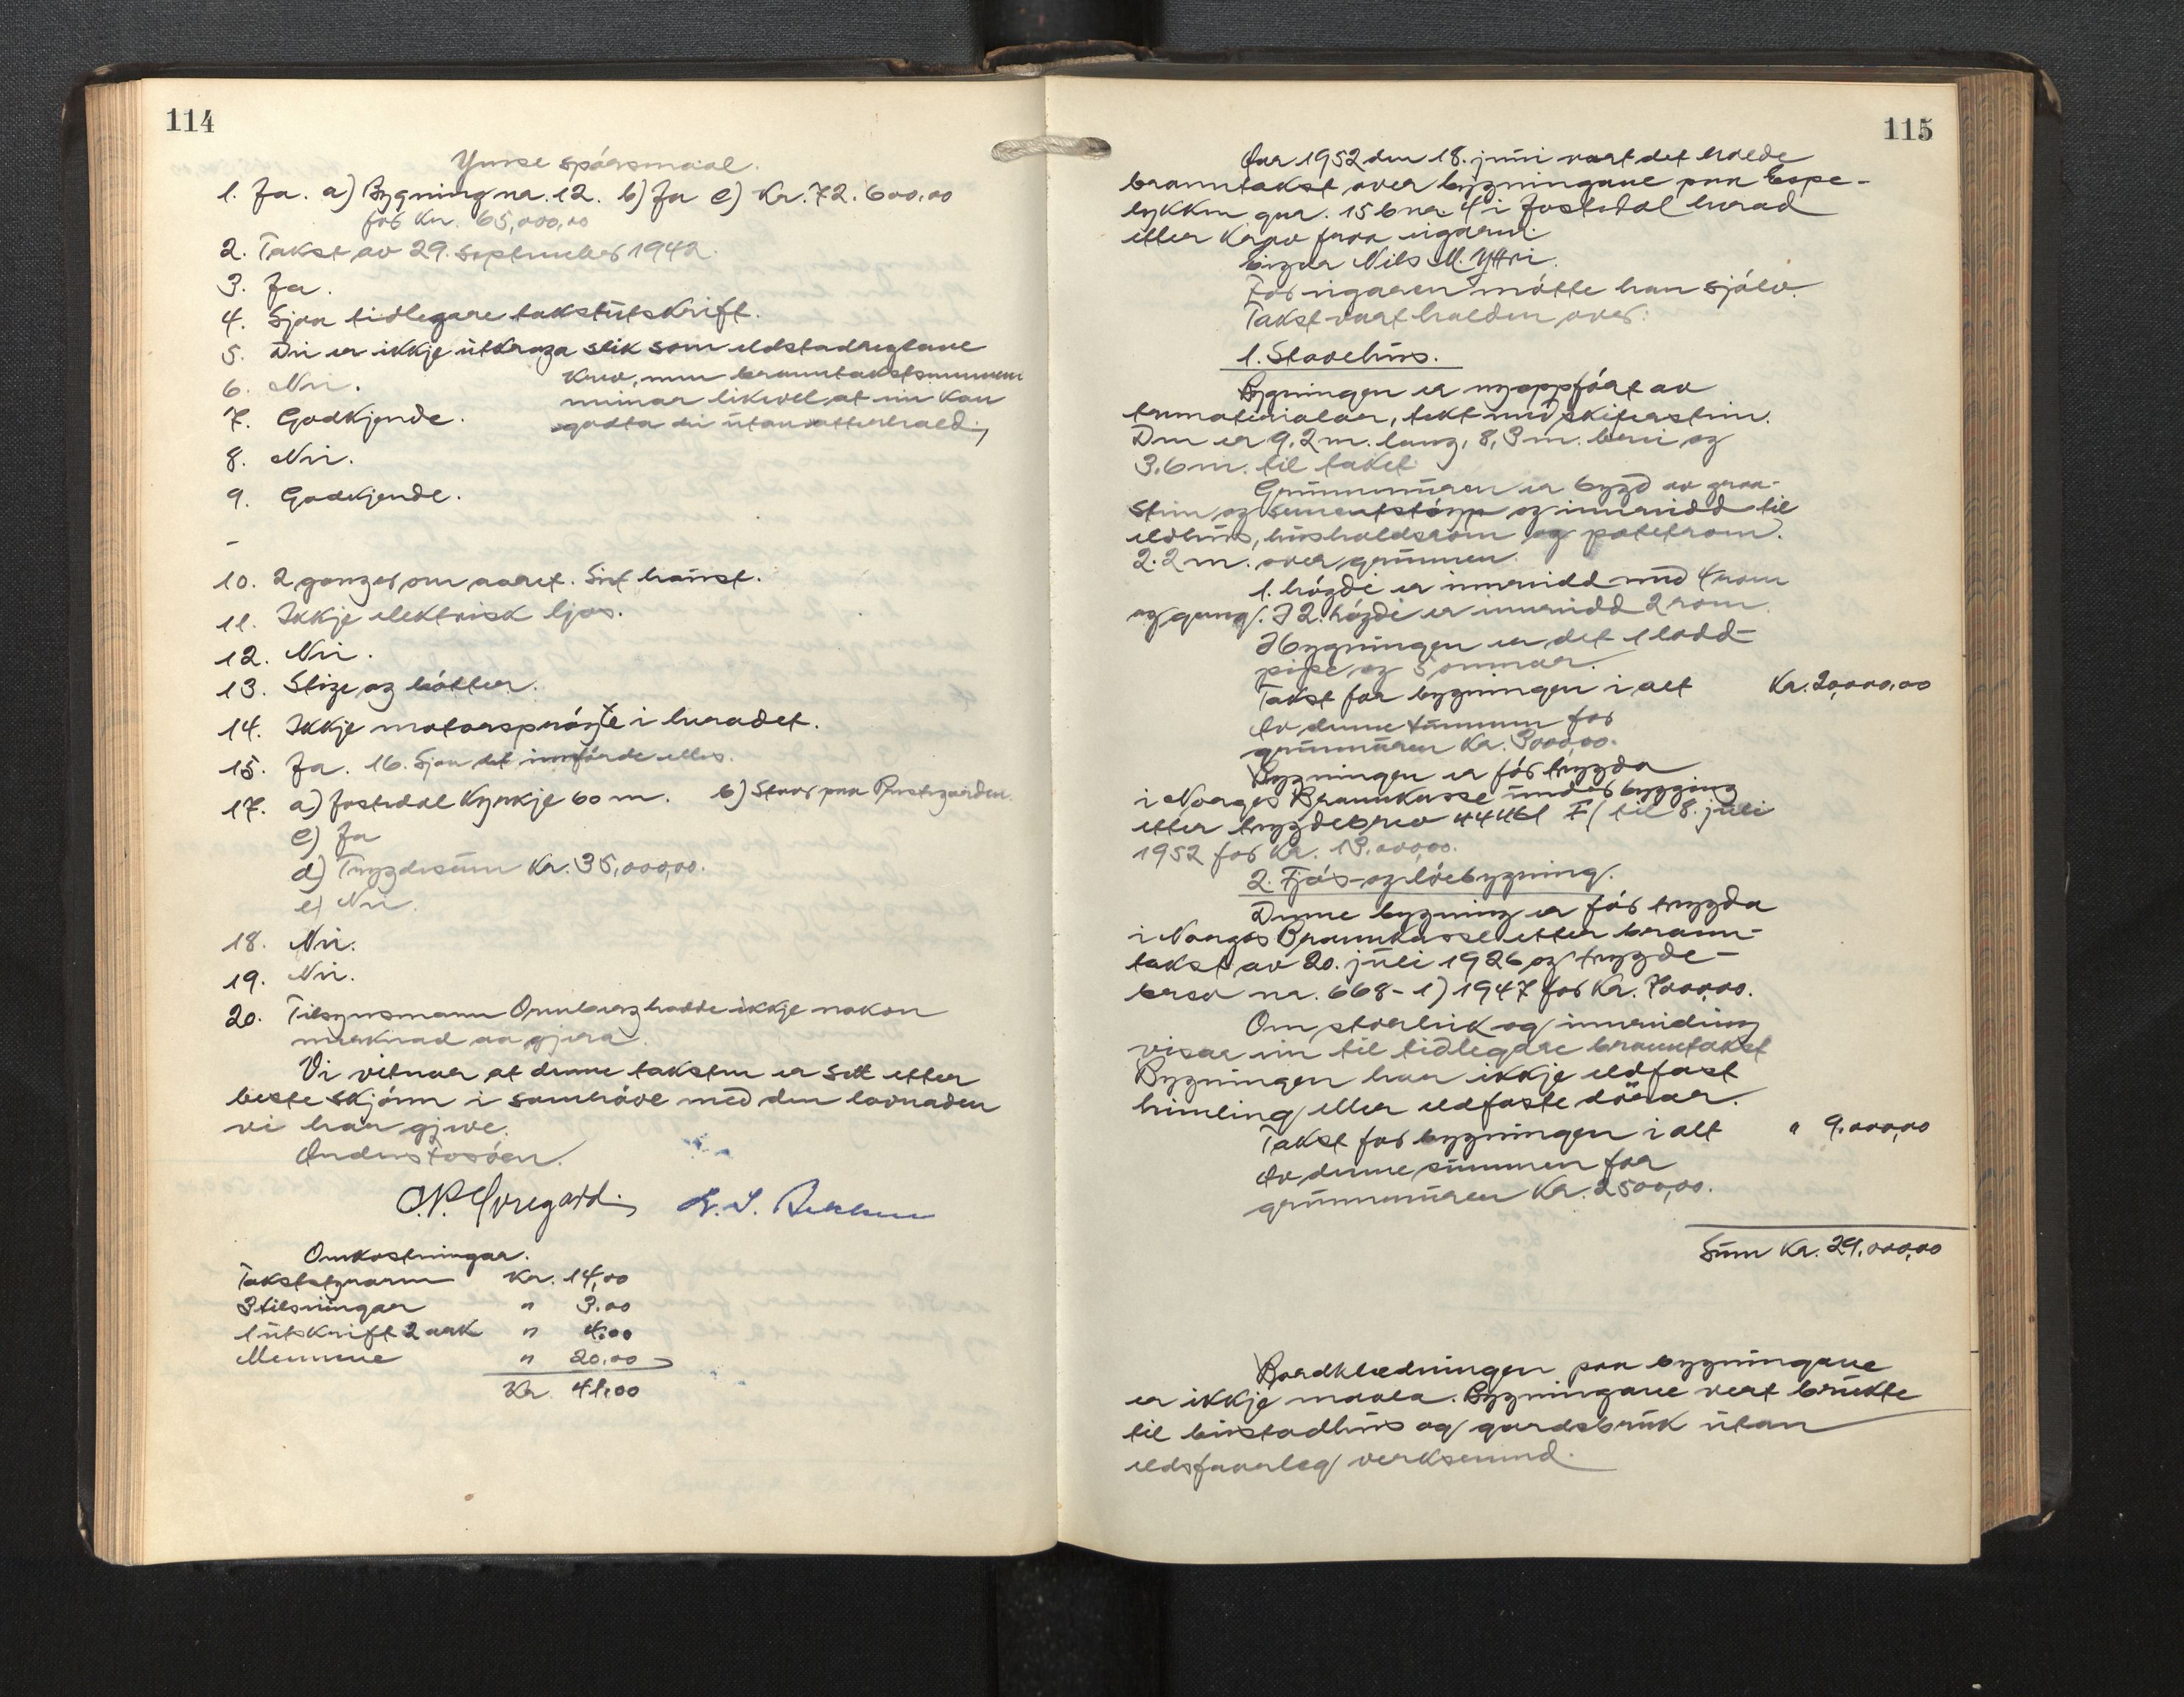 114
Ymse spörsmaal.
1. Ja. a) Bygning nr. 12. b) Ja c) Kr. 72.600,00
for Kr. 65,000,00
2. Takst av 29. september 1942.
3. Ja.
4. Sjaa tidlegare takstutskrift.
5. Dei er ikkje utkraga slik som eldstadreglane
krev, men branntakstmennene
meinar likevel at ein kan
godta dei utan atterhald.
6. Nei.
7. Godkjende.
8. Nei.
9. Godkjende.
-
10. 2 gonger om aaret. Sist haust.
11. Ikkje elektrisk ljos.
12. Nei.
13. Stige og bötter.
14. Ikkje motorspröjte i heradet.
15. Ja. 16. Sjaa det innförde elles.
17. a) Jostedal Kyrkje 60 m. b) Staar paa Prestegarden.
c) Ja
d) Trygdesum Kr. 35,000,00.
e) Nei.
18. Nei.
19. Nei.
20. Tilsynsmann Ormberg hadde ikkje nokon
merknad aa gjera.
Vi vitnar at denne taksten er sett etter
beste skjönn i samhöve med den lovnaden
vi har gjeve.
Anders Fosöen.
Övregard.
Omkostningar.
Takststyraren Kr. 14,00
3 tilseiingar " 3.00
1 utskrift 2 ark " 4.00
Mennene " 20.00
Kr. 41.00
115
Aar 1952 den 18. juni vart det halde
branntakst over bygningane paa Espe-
lykkin gnr. 15 bnr. 4 i Jostedal herad
etter krav fraa eigaren.
Eigar Nils M. Yttri.
For eigaren mötte han sjölv.
Takst vart halden over:
1. Stovehus.
Bygningen er nyoppfört av
trematerialar, tekt med skiferstein.
Den er 9,2 m. lang, 8,3 m. brei og
3,6 m. til taket.
Grunnmuren er bygd av graa-
stein og sementstöyp og innreidd til
eldhus, hushaldsrom og potetrom.
2.2 m. over grunnen.
1. högdi er innreidd med 4 rom
og gang. I 2. högdi er innreidd 2 rom.
I bygningen er det 1 lodd-
pipe og 3 omnar.
Takst for bygningen i alt Kr. 20,000,00
Av denne summen for
grunnmuren Kr. 3000,00.
Bygningen er för trygda
i Norges Brannkasse under bygging
etter trygdebrev 44461 F/ til 8. juli
1952 for Kr. 13.000,00.
2. Fjös- og löebygning.
Denne bygning er för trygda
i Norges Brannkasse etter brann-
takst av 20. juli 1926 og trygde-
brev nr. 668-1) 1947 for Kr. 7000,00.
Om storleik og innreiding
visar ein til tidlegare branntakst
Bygningen har ikkje eldfast
himling eller eldfaste dörar.
Takst for bygningen i alt " 9.000,00
Av denne summen for
grunnmuren Kr. 2500,00.
Sum Kr. 29.000,00
Bordklædningen paa bygningane
er ikkje maala. Bygningane vert brukte
til bustadhus og gardsbruk utan
eldsfaarleg verksemd.